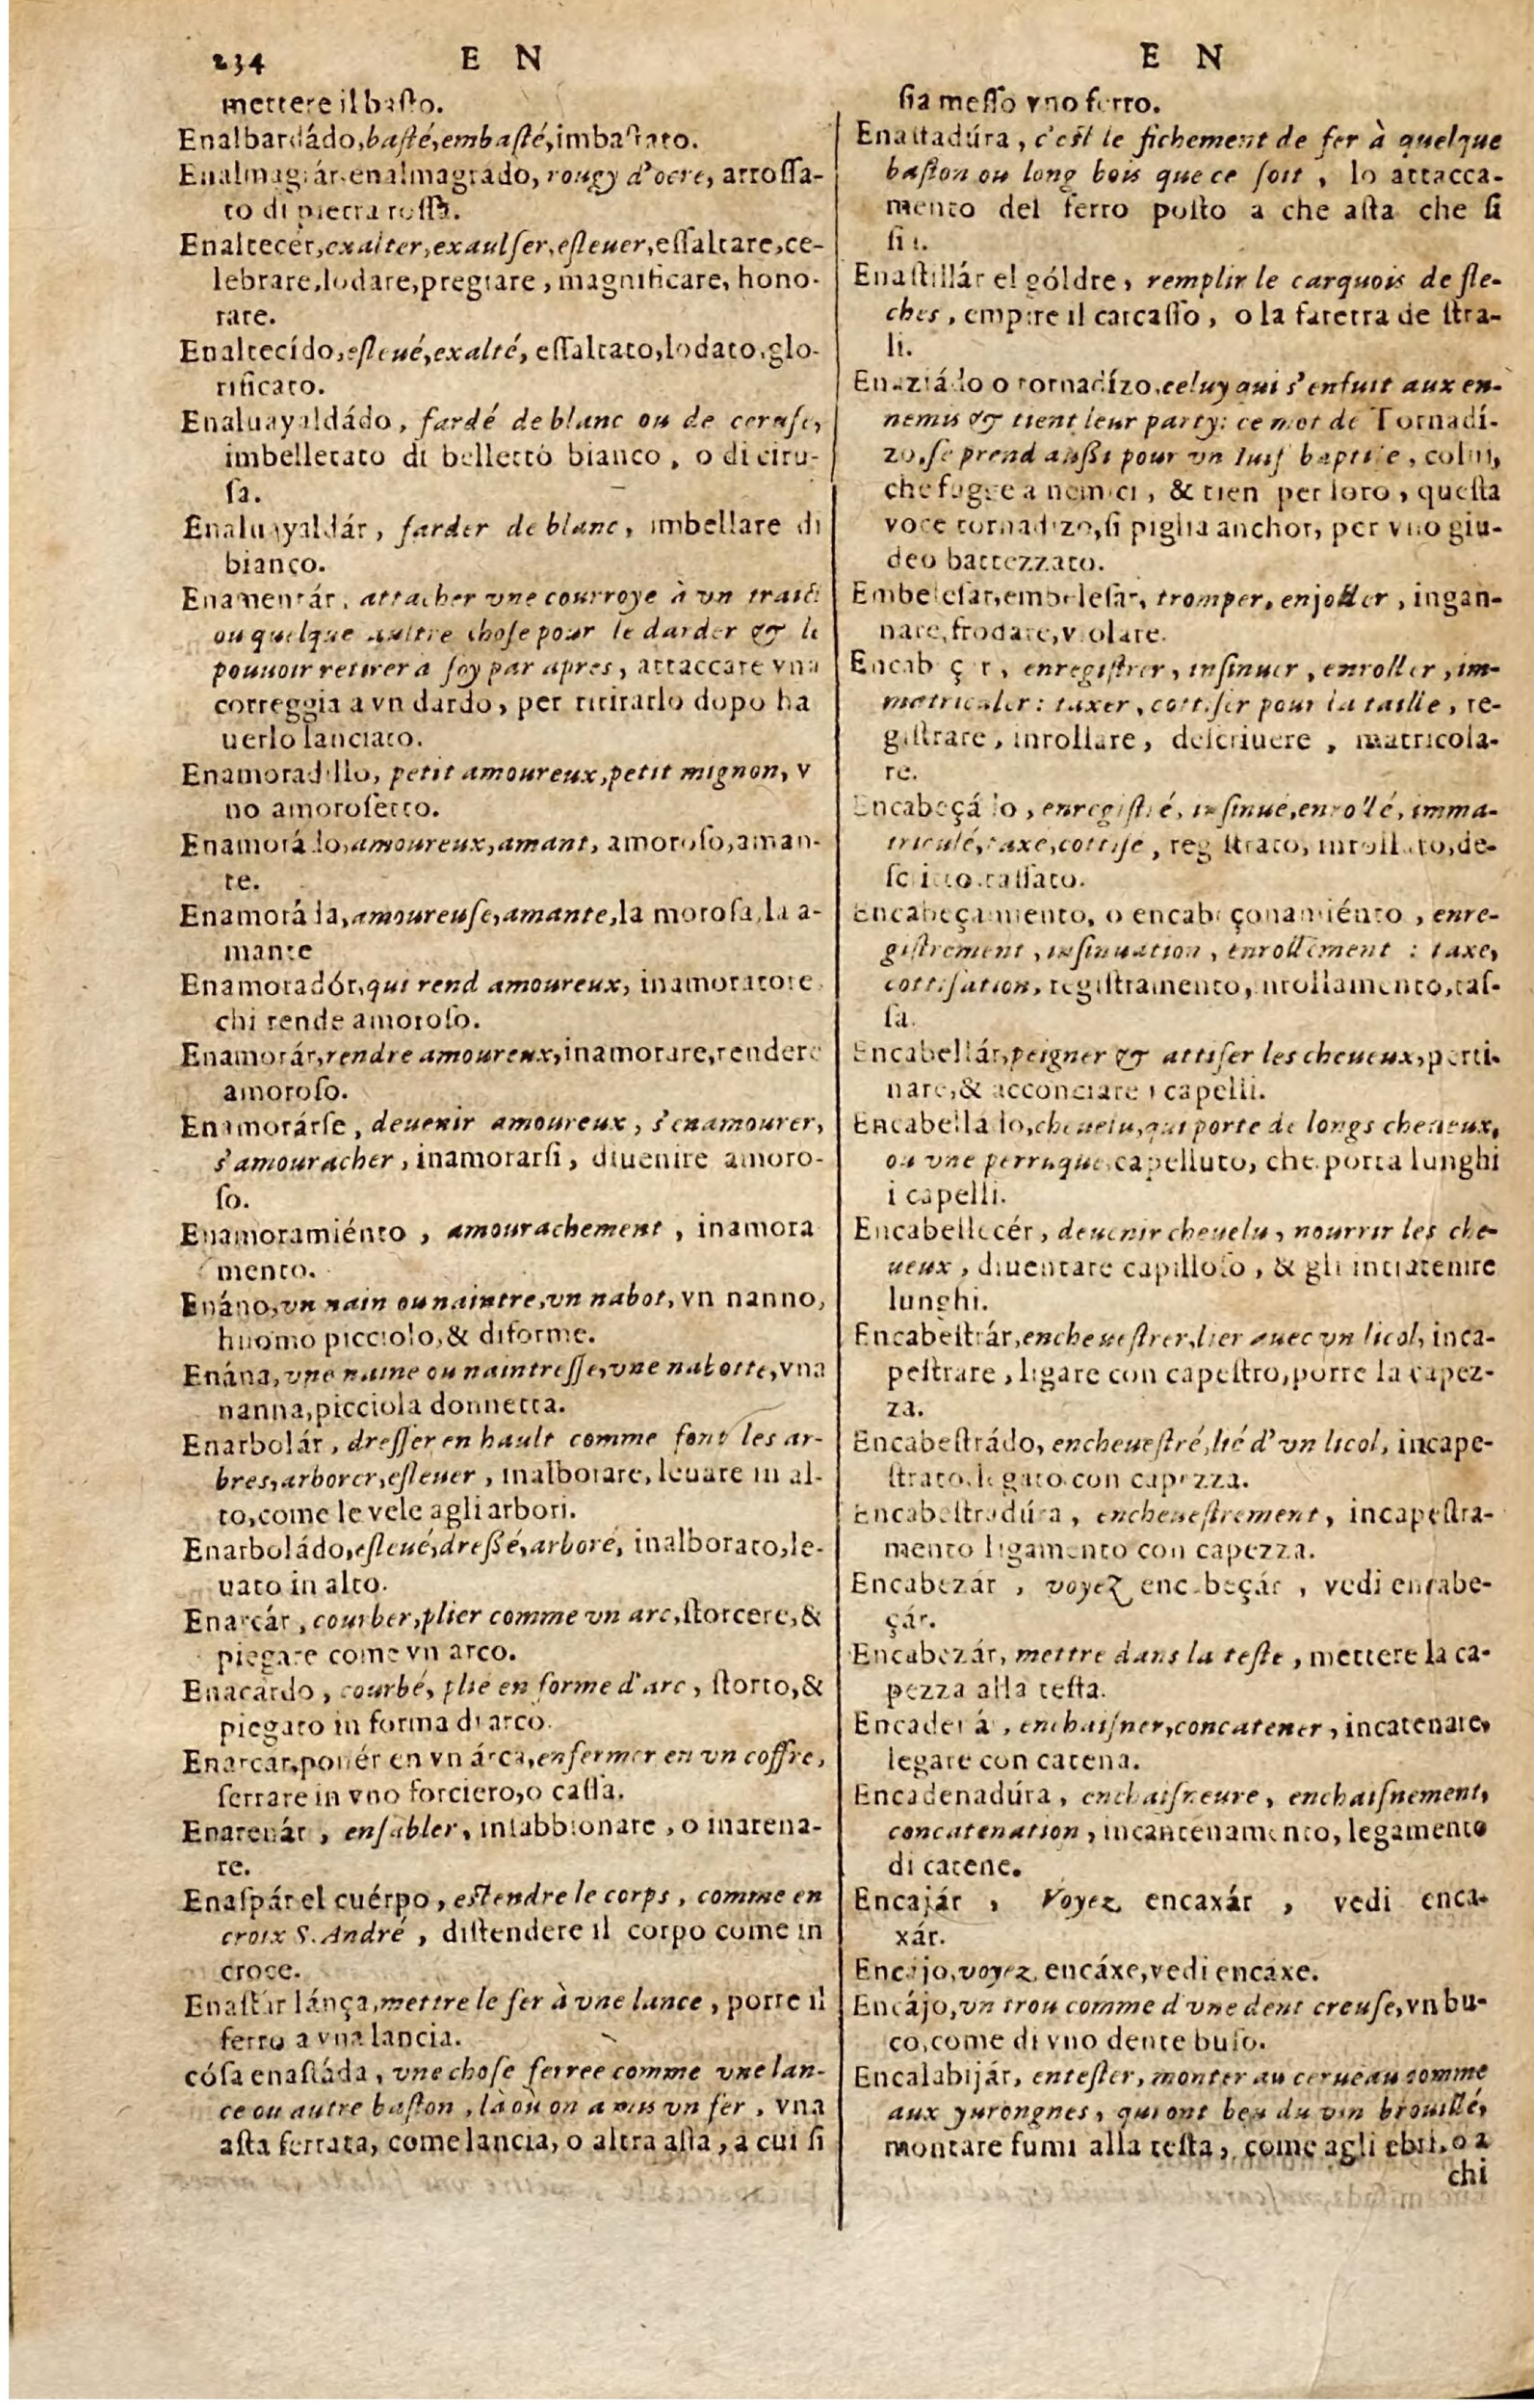 234 E N
mettere il basto.
Enalbardádo, basté, embasté, imbastato.
Enalmagrár, enalmagrado, rougy d'ocre, arrossa-
to di pietra rossa.
Enaltecér, exalter, exaulser, esleuer, essaltare, ce-
lebrare, lodare, pregiare, magnificare, hono-
rare.
Enaltecído, esleué, exalté, essaltato, lodato, glo-
rificato.
Enaluayaldádo, fardé de blanc ou de ceruse,
imbelletato di belletto bianco, o di ciru-
sa.
Enaluayaldár, farder de blanc, imbellare di
bianco.
Enamentár, attacher vne courroye à vn traict
ou quelque aultre chose pour le darder & le
pouuoir retirer à soy par apres, attaccare vna
correggia a vn dardo, per ritirarlo dopo ha
uerlo lanciato.
Enamoradillo, petit amoureux, petit mignon, v
no amorosetto.
Enamorádo, amoureux, amant, amoroso, aman-
te.
Enamoráda, amoureuse, amante, la morosa, la a-
mante
Enamoradór, qui rend amoureux, inamoratore
chi rende amoroso.
Enamorár, rendre amoureux, inamorare, rendere
amoroso.
Enamorárse, deuenir amoureux, s'enamourer,
s'amouracher, inamorarsi, diuenire amoro-
so.
Enamoramiénto, amourachement, inamora
mento.
Enáno, vn nain ou naintre, vn nabot, vn nanno,
huomo picciolo, & diforme.
Enána, vne naine ou naintresse, vne nabotte, vna
nanna, picciola donnetta.
Enarbolár, dresser en hault comme font les ar-
bres, arborer, esleuer, inalborare, leuare in al-
to, come le vele agli arbori.
Enarboládo, esleué, dressé, arboré, inalborato, le-
uato in alto.
Enarcár, courber, plier comme vn arc, storcere, &
piegare come vn arco.
Enacardo, courbé, plié en forme d'arc, storto, &
piegato in forma di arco.
Enarcar, ponér en vn árca, enfermer en vn coffre,
serrare in vno forciero, o cassa.
Enarenár, ensabler, insabbionare, o inarena-
re.
Enaspár el cuérpo, estendre le corps, comme en
croix S. André, distendere il corpo come in
croce.
Enastár lánça, mettre le fer à vne lance, porre il
ferro a vna lancia.
cósa enastáda, vne chose ferree comme vne lan-
ce ou autre baston, là où on a mis vn fer, vna
asta ferrata, come lancia, o altra asta, a cui si
E N
sia messo vno ferro.
Enastadúra, c'est le fichement de fer à quelque
baston ou long bois que ce soit, lo attacca-
mento del ferro posto a che asta che si
sia.
Enastillár el góldre, remplir le carquois de fle-
ches, empire il carcasso, o la faretra de stra-
li.
Enaziádo o tornadízo, celuy qui s'enfuit aux en-
nemis & tient leur party: ce mot de Tornadí-
zo, se prend aussi pour vn Iuif baptisé, colui,
che fugge a nemici, & tien per loro, questa
voce tornadizo, si piglia anchor, per vno giu-
deo battezzato.
Embelesar, embelesar, tromper, enjoller, ingan-
nare, frodare, violare.
Encabeçar, enregistrer, insinuer, enroller, im-
matriculer: taxer, cottiser pour la taille, re-
gistrare, inrollare, descriuere, matricola-
re.
Encabeçádo, enregistré, insinué, enrollé, imma-
triculé, taxé, cottisé, registrato, inrollato, de-
scritto, tassato.
Encabeçamiento, o encabeçonamiénto, enre-
gistrement, insinuation, enrollement: taxe,
cottisation, registramento, inrollamento, tas-
sa.
Encabellár, peigner & attiser les cheueux, petti-
nare, & acconciare i capelli.
Encabelládo, cheuelu, qui porte de longs cheueux,
ou vne perruque, capelluto, che porta lunghi
i capelli.
Encabellecér, deuenir cheuelu, nourrir les che-
ueux, diuentare capilloso, & gli intratenire
lunghi.
Encabestrár, encheuestrer, lier auec vn licol, inca-
pestrare, ligare con capestro, porre la capez-
za.
Encabestrádo, encheuestré, lié d'vn licol, incape-
strato, legato con capezza.
Encabestradúra, encheuestrement, incapestra-
mento ligamento con capezza.
Encabezár, voyez encabeçár, vedi encabe-
çár.
Encabezár, mettre dans la teste, mettere la ca-
pezza alla testa.
Encadenár, enchaisner, concatener, incatenare,
legare con catena.
Encadenadúra, enchaisneure, enchaisnement,
concatenation, incantenamento, legamento
di catene.
Encajár, Voyez encaxár, vedi enca-
xár.
Encajo, voyez encáxe, vedi encaxe.
Encájo, vn trou comme d'vne dent creuse, vn bu-
co, come di vno dente buso.
Encalabijár, entester, monter au cerueau comme
aux yurongnes, qui ont beu du vin brouillé,
montare fumi alla testa, come agli ebri, o a
chi